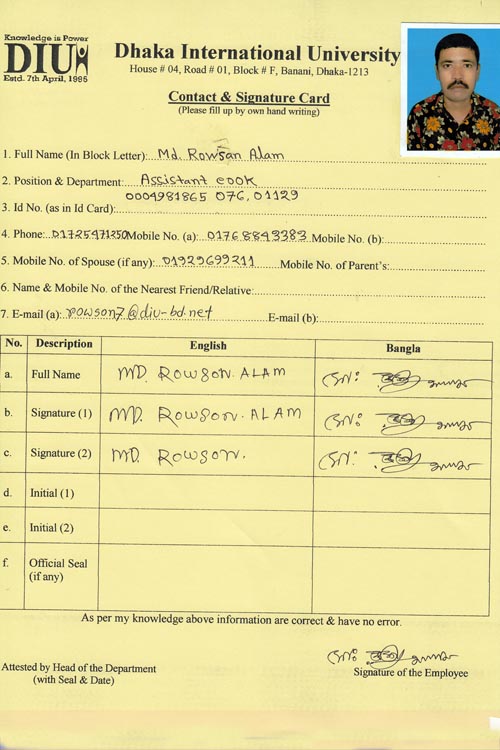 Knowledge is Power
DIU
Estd. 7th April, 1995
Dhaka International University
House # 04, Road # 01, Block # F, Banani, Dhaka-1213
Contact & Signature Card
(Please fill up by own hand writing)
1. Full Name (In Block Letter): Md. Rowsan Alam
2. Position & Department: Assistant cook
3. Id No. (as in Id Card): 0004981865 076, 01129
4. Phone: 01725471250 Mobile No. (a): 01768843383 Mobile No. (b):
5. Mobile No. of Spouse (if any): 01929699211 Mobile No. of Parent's:
6. Name & Mobile No. of the Nearest Friend/Relative:
7. E-mail (a): rowson7@diu-bd.net E-mail (b):
No. Description English Bangla
a. Full Name MD. ROWSON. ALAM
b. Signature (1) MD. ROWSON. ALAM
c. Signature (2) MD. ROWSON.
d. Initial (1)
e. Initial (2)
f. Official Seal
(if any)
As per my knowledge above information are correct & have no error.
Attested by Head of the Department
(with Seal & Date)
Signature of the Employee